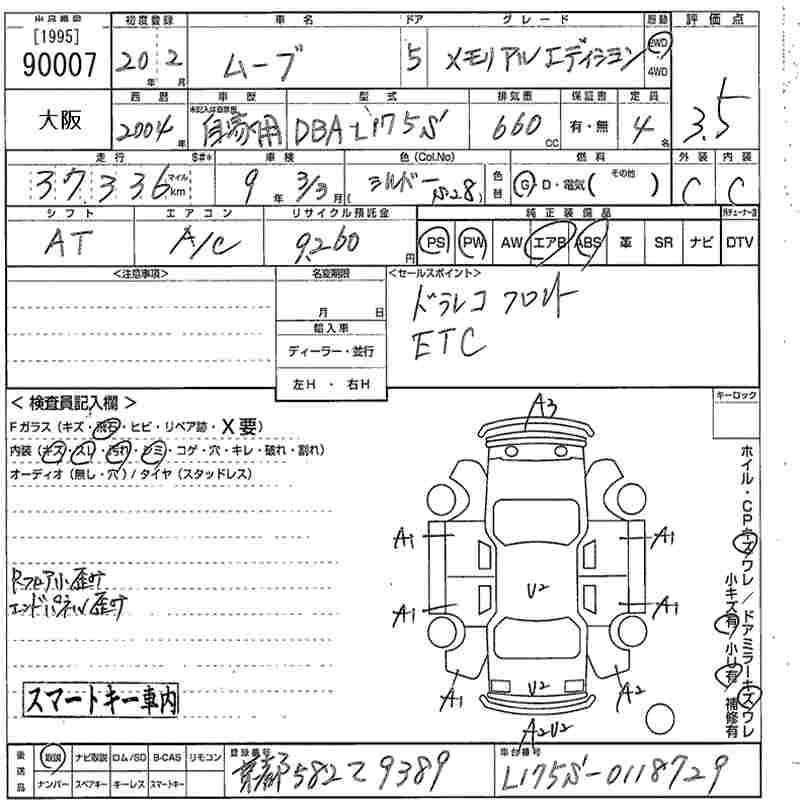 [1995]
90007
初度登録 車名 ドア グレード 駆動 評価点
20年 2月 ムーブ 5 メモリアルエディション 2WD 4WD 3.5
大阪
西暦 車歴 型式 排気量 保証書 定員
2004年 未記入は自家用 自家用 DBA-L175S 660cc 有・無 4名
走行 S#* 車検 色(Col.No) 色替 燃料 外装 内装
37336 マイル km 9年 3/3月 シルバー (S28) G・D・電気( その他 ) C C
シフト エアコン リサイクル預託金 純正装備品
AT A/C 9,260円 PS PW AW エアB ABS 革 SR ナビ DTV
<注意事項> 名変期限 <セールスポイント>
月 日
ドラレコ フロント
輸入車
ETC
ディーラー・並行
左H ・ 右H
< 検査員記入欄 > キーロック
Fガラス (キズ・飛石・ヒビ・リペア跡・X要)
内装 (キズ・スレ・汚れ・シミ・コゲ・穴・キレ・破れ・割れ)
オーディオ (無し・穴) / タイヤ (スタッドレス)
A3
A1 A1
U2
A1 A1
Rフロア小歪み
エンドパネル歪み
A1 U2 A2
A2U2
スマートキー車内
ホイル・CPキズワレ / ドアミラーキズワレ
小キズ有 小U有 補修有
後送品 取説 ナビ取説 ロム/SD B-CAS リモコン
ナンバー スペアキー キーレス スマートキー
登録番号 京都582て9389
車台番号 L175S-0118729